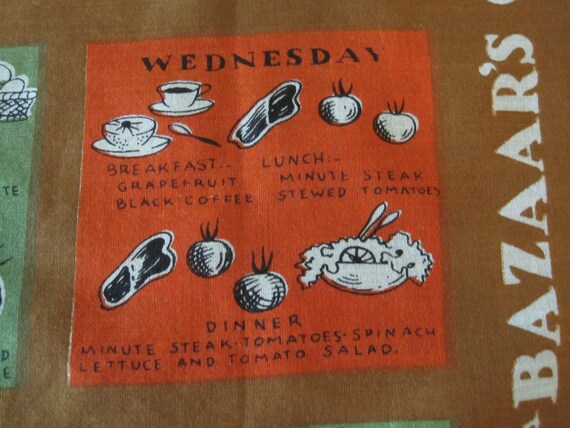 WEDNESDAY
BREAKFAST.-
GRAPEFRUIT
BLACK COFFEE
LUNCH:-
MINUTE STEAK
STEWED TOMATOES
DINNER
MINUTE STEAK·TOMATOES·SPINACH
LETTUCE AND TOMATO SALAD.
BAZAAR'S